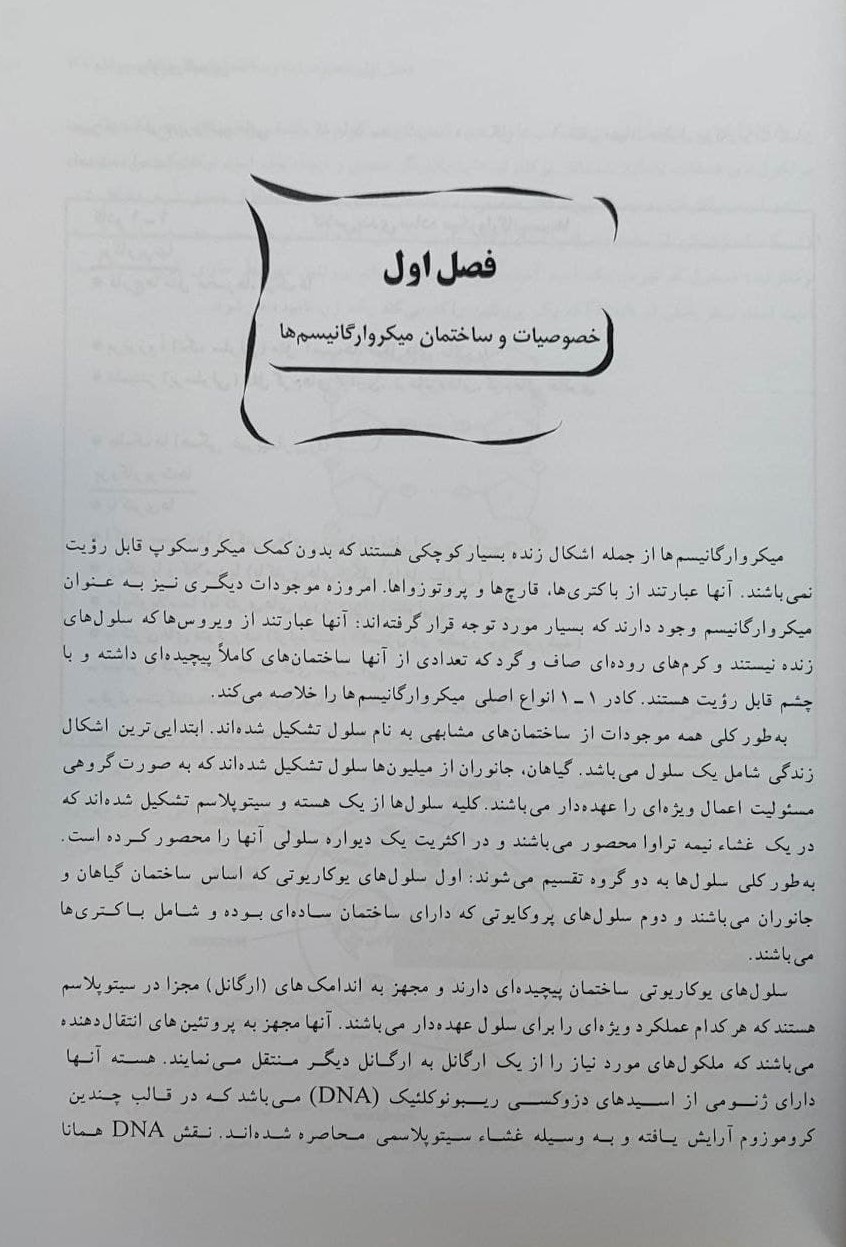 فصل اول
خصوصیات و ساختمان میکروارگانیسم‌ها
میکروارگانیسم‌ها از جمله اشکال زنده بسیار کوچکی هستند که بدون کمک میکروسکوپ قابل رؤیت
نمی‌باشند. آنها عبارتند از باکتری‌ها، قارچ‌ها و پروتوزواها. امروزه موجودات دیگری نیز به عنوان
میکروارگانیسم وجود دارند که بسیار مورد توجه قرار گرفته‌اند: آنها عبارتند از ویروس‌ها که سلول‌های
زنده نیستند و کرم‌های روده‌ای صاف و گرد که تعدادی از آنها ساختمان‌های کاملاً پیچیده‌ای داشته و با
چشم قابل رؤیت هستند. کادر ۱ ـ ۱ انواع اصلی میکروارگانیسم‌ها را خلاصه می‌کند.
به‌طور کلی همه موجودات از ساختمان‌های مشابهی به نام سلول تشکیل شده‌اند. ابتدایی‌ترین اشکال
زندگی شامل یک سلول می‌باشد. گیاهان، جانوران از میلیون‌ها سلول تشکیل شده‌اند که به صورت گروهی
مسئولیت اعمال ویژه‌ای را عهده‌دار می‌باشند. کلیه سلول‌ها از یک هسته و سیتوپلاسم تشکیل شده‌اند که
در یک غشاء نیمه تراوا محصور می‌باشند و در اکثریت یک دیواره سلولی آنها را محصور کرده است.
به‌طور کلی سلول‌ها به دو گروه تقسیم می‌شوند: اول سلول‌های یوکاریوتی که اساس ساختمان گیاهان و
جانوران می‌باشند و دوم سلول‌های پروکایوتی که دارای ساختمان ساده‌ای بوده و شامل باکتری‌ها
می‌باشند.
سلول‌های یوکاریوتی ساختمان پیچیده‌ای دارند و مجهز به اندامک‌های (ارگانل) مجزا در سیتوپلاسم
هستند که هر کدام عملکرد ویژه‌ای را برای سلول عهده‌دار می‌باشند. آنها مجهز به پروتئین‌های انتقال‌دهنده
می‌باشند که ملکول‌های مورد نیاز را از یک ارگانل به ارگانل دیگر منتقل می‌نمایند. هسته آنها
دارای ژنومی از اسیدهای دزوکسی ریبونوکلئیک (DNA) می‌باشد که در قالب چندین
کروموزوم آرایش یافته و به وسیله غشاء سیتوپلاسمی محاصره شده‌اند. نقش DNA همانا